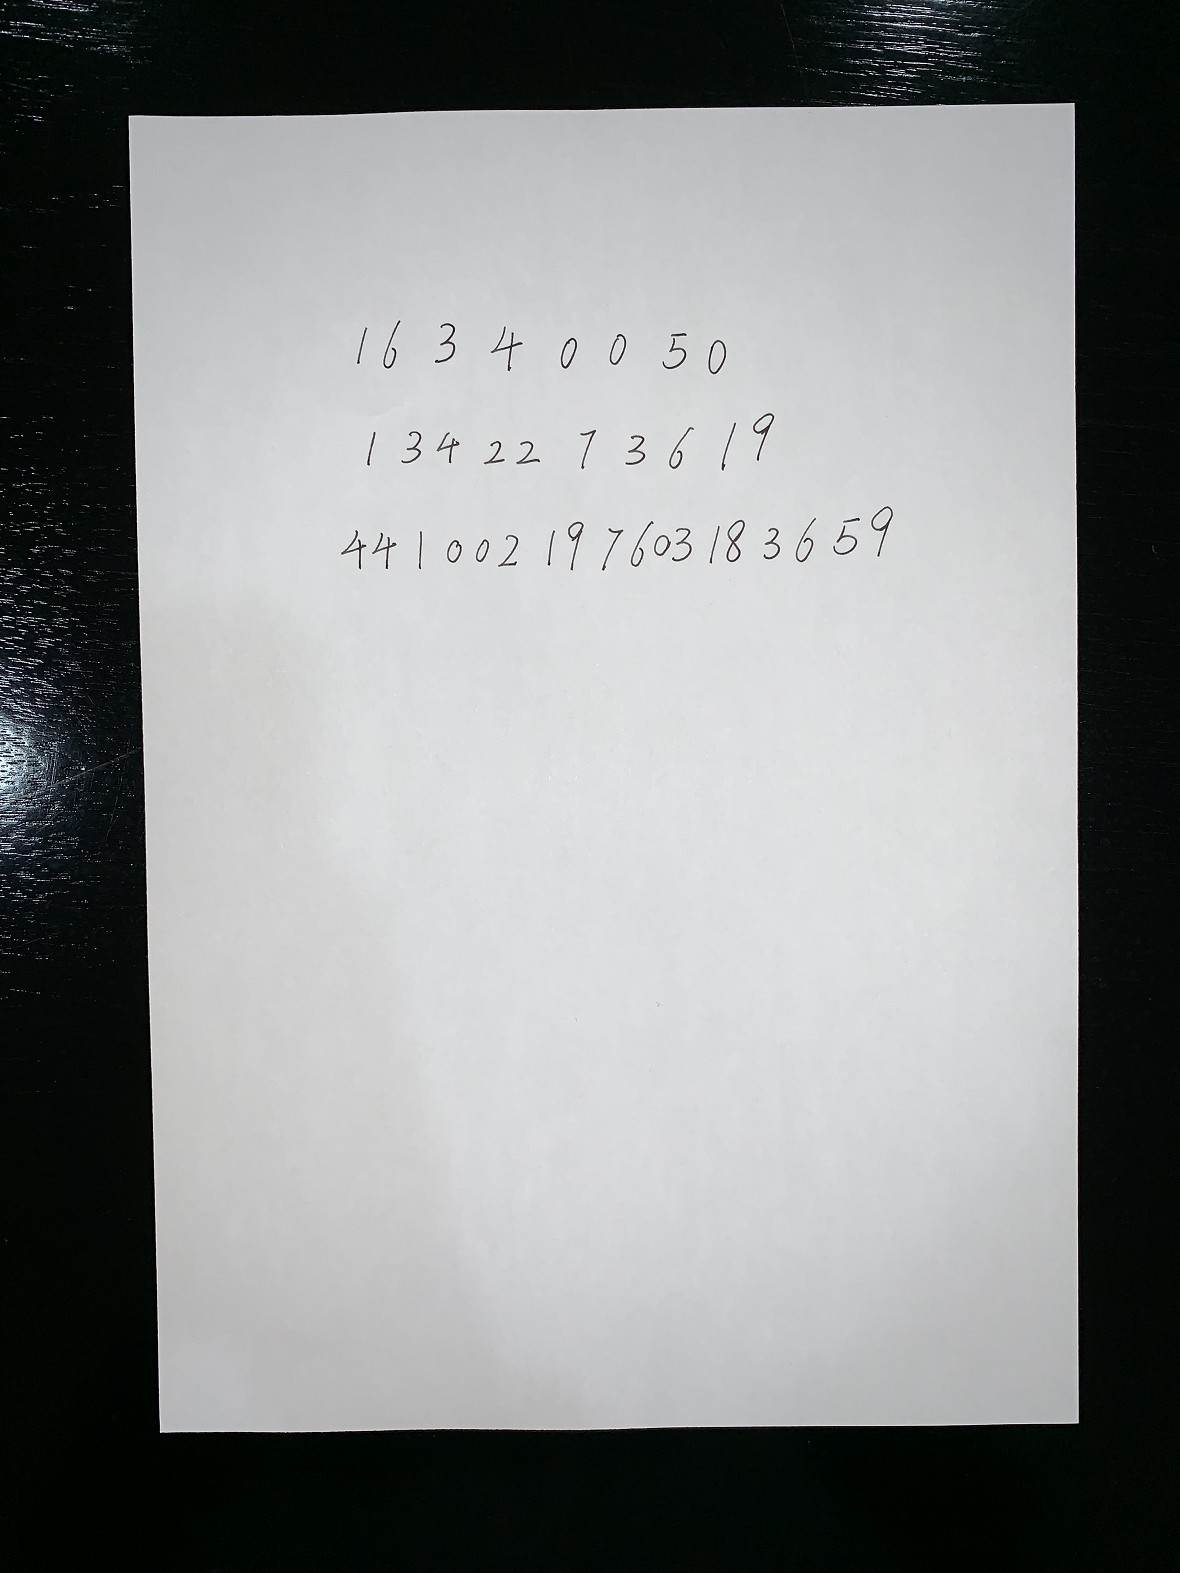 16 3 4 0 0 50
1 34 22 7 3 6 19
441 002 19 7603 18 3 6 59